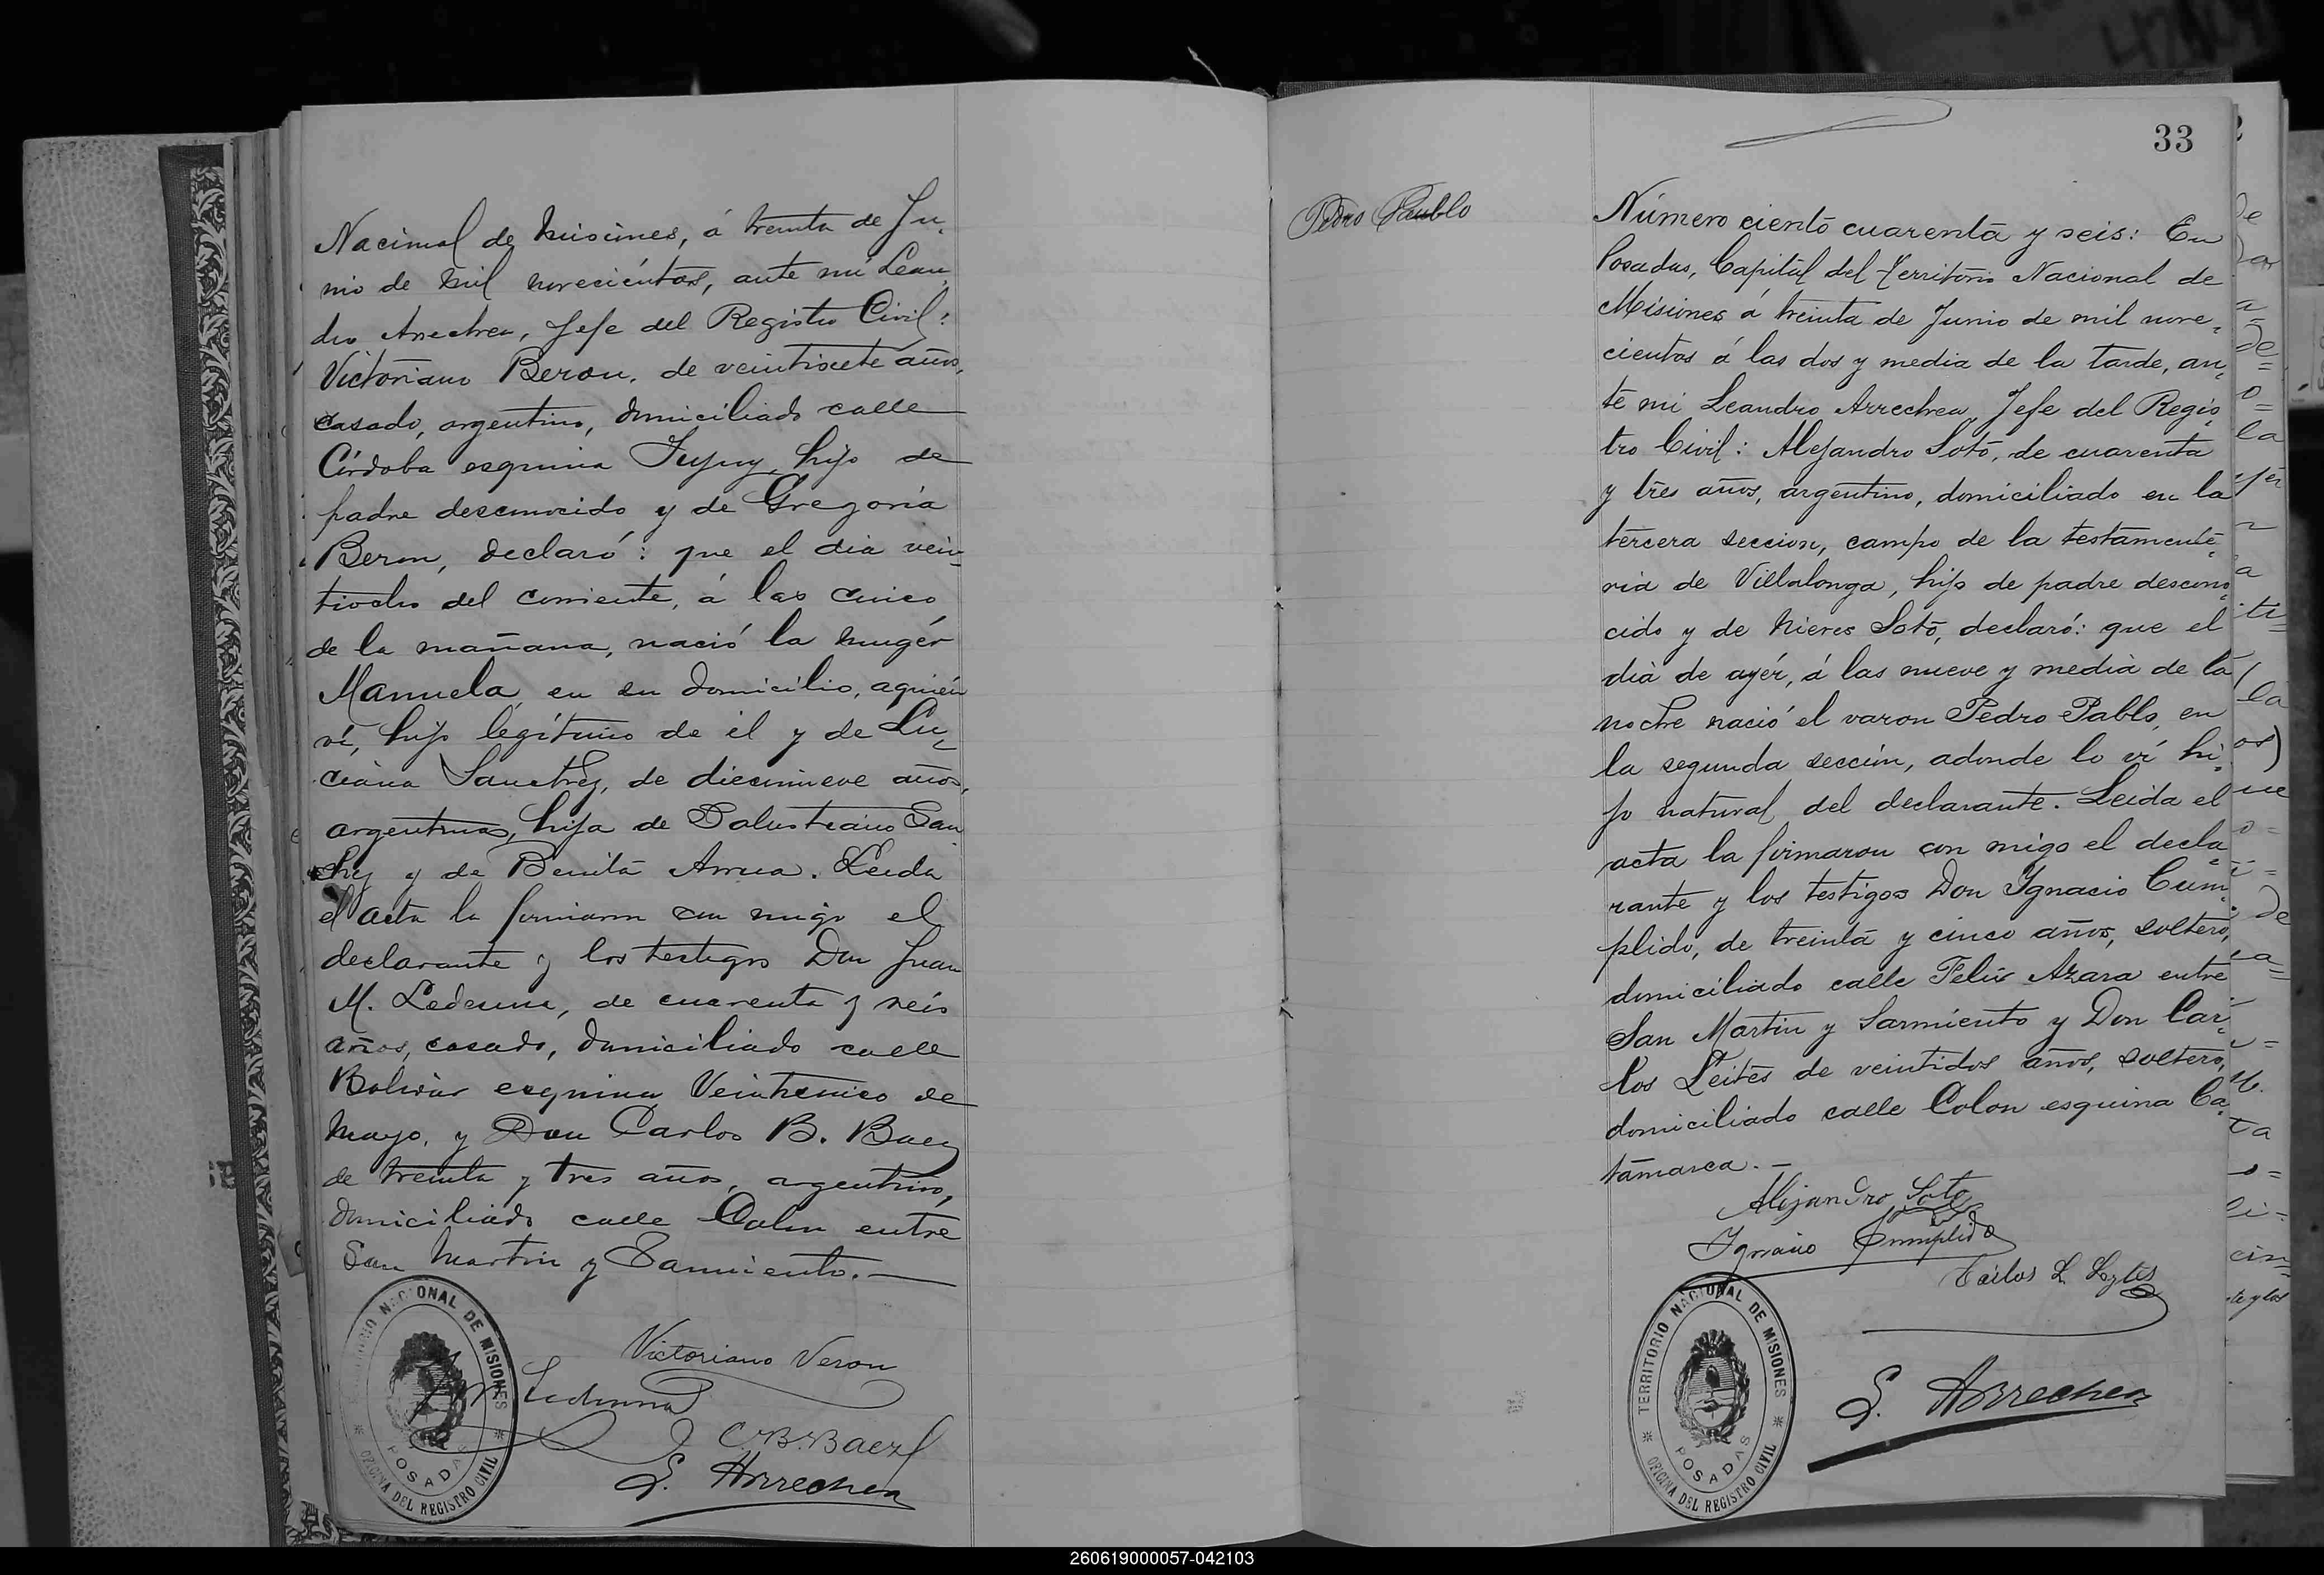 Nacional de Misiones, á treinta de Ju-
nio de mil novecientos, ante mi Lean-
dro Arrechea, Jefe del Registro Civil:
Victoriano Beron, de veintisiete años,
casado, argentino, domiciliado calle
Córdoba esquina Jujuy, hijo de
padre desconocido y de Gregoria
Beron, declaró: que el dia vein-
tiocho del corriente, á las cinco
de la mañana, nació la muger
Manuela, en su domicilio, aquien
ví, hijo legítimo de él y de Lu-
ciana Sanchez, de diecinueve años,
argentina, hija de Salustiano San
chez y de Benita Arrua. Leida
el acta la firmaron con migo el
declarante y los testigos Don Juan
M. Ledesma, de cuarenta y seis
años, casado, domiciliado calle
Bolivar esquina Veinticinco de
Mayo, y Don Carlos B. Baez
de treinta y tres años, argentino,
domiciliado calle Colon entre
San Martin y Sarmiento.—
Victoriano Veron
Ledesma
C. B. Baez
L. Arrechea
TERRITORIO NACIONAL DE MISIONES
POSADAS
OFICINA DEL REGISTRO CIVIL
33
Pedro Paublo
Número ciento cuarenta y seis: En
Posadas, Capital del Territorio Nacional de
Misiones á treinta de Junio de mil nove-
cientos á las dos y media de la tarde, an-
te mi Leandro Arrechea, Jefe del Regis-
tro Civil: Alejandro Soto, de cuarenta
y tres años, argentino, domiciliado en la
tercera seccion, campo de la testamente-
ria de Villalonga, hijo de padre descono-
cido y de Nieves Soto, declaró: que el
dia de ayér, á las nueve y media de la
noche nació el varon Pedro Pablo, en
la segunda sección, adonde lo ví hi-
jo natural del declarante. Leida el
acta la firmaron con migo el decla-
rante y los testigos Don Ygnacio Cum-
plido, de treinta y cinco años, soltero,
domiciliado calle Felix Azara entre
San Martin y Sarmiento y Don Car-
los Leites de veintidos años, soltero,
domiciliado calle Colon esquina Ca-
tamarca.—
Alejandro Soto
Ygnacio Cumplido
Carlos L. Leytes
L. Arrechea
TERRITORIO NACIONAL DE MISIONES
POSADAS
OFICINA DEL REGISTRO CIVIL
260619000057-042103